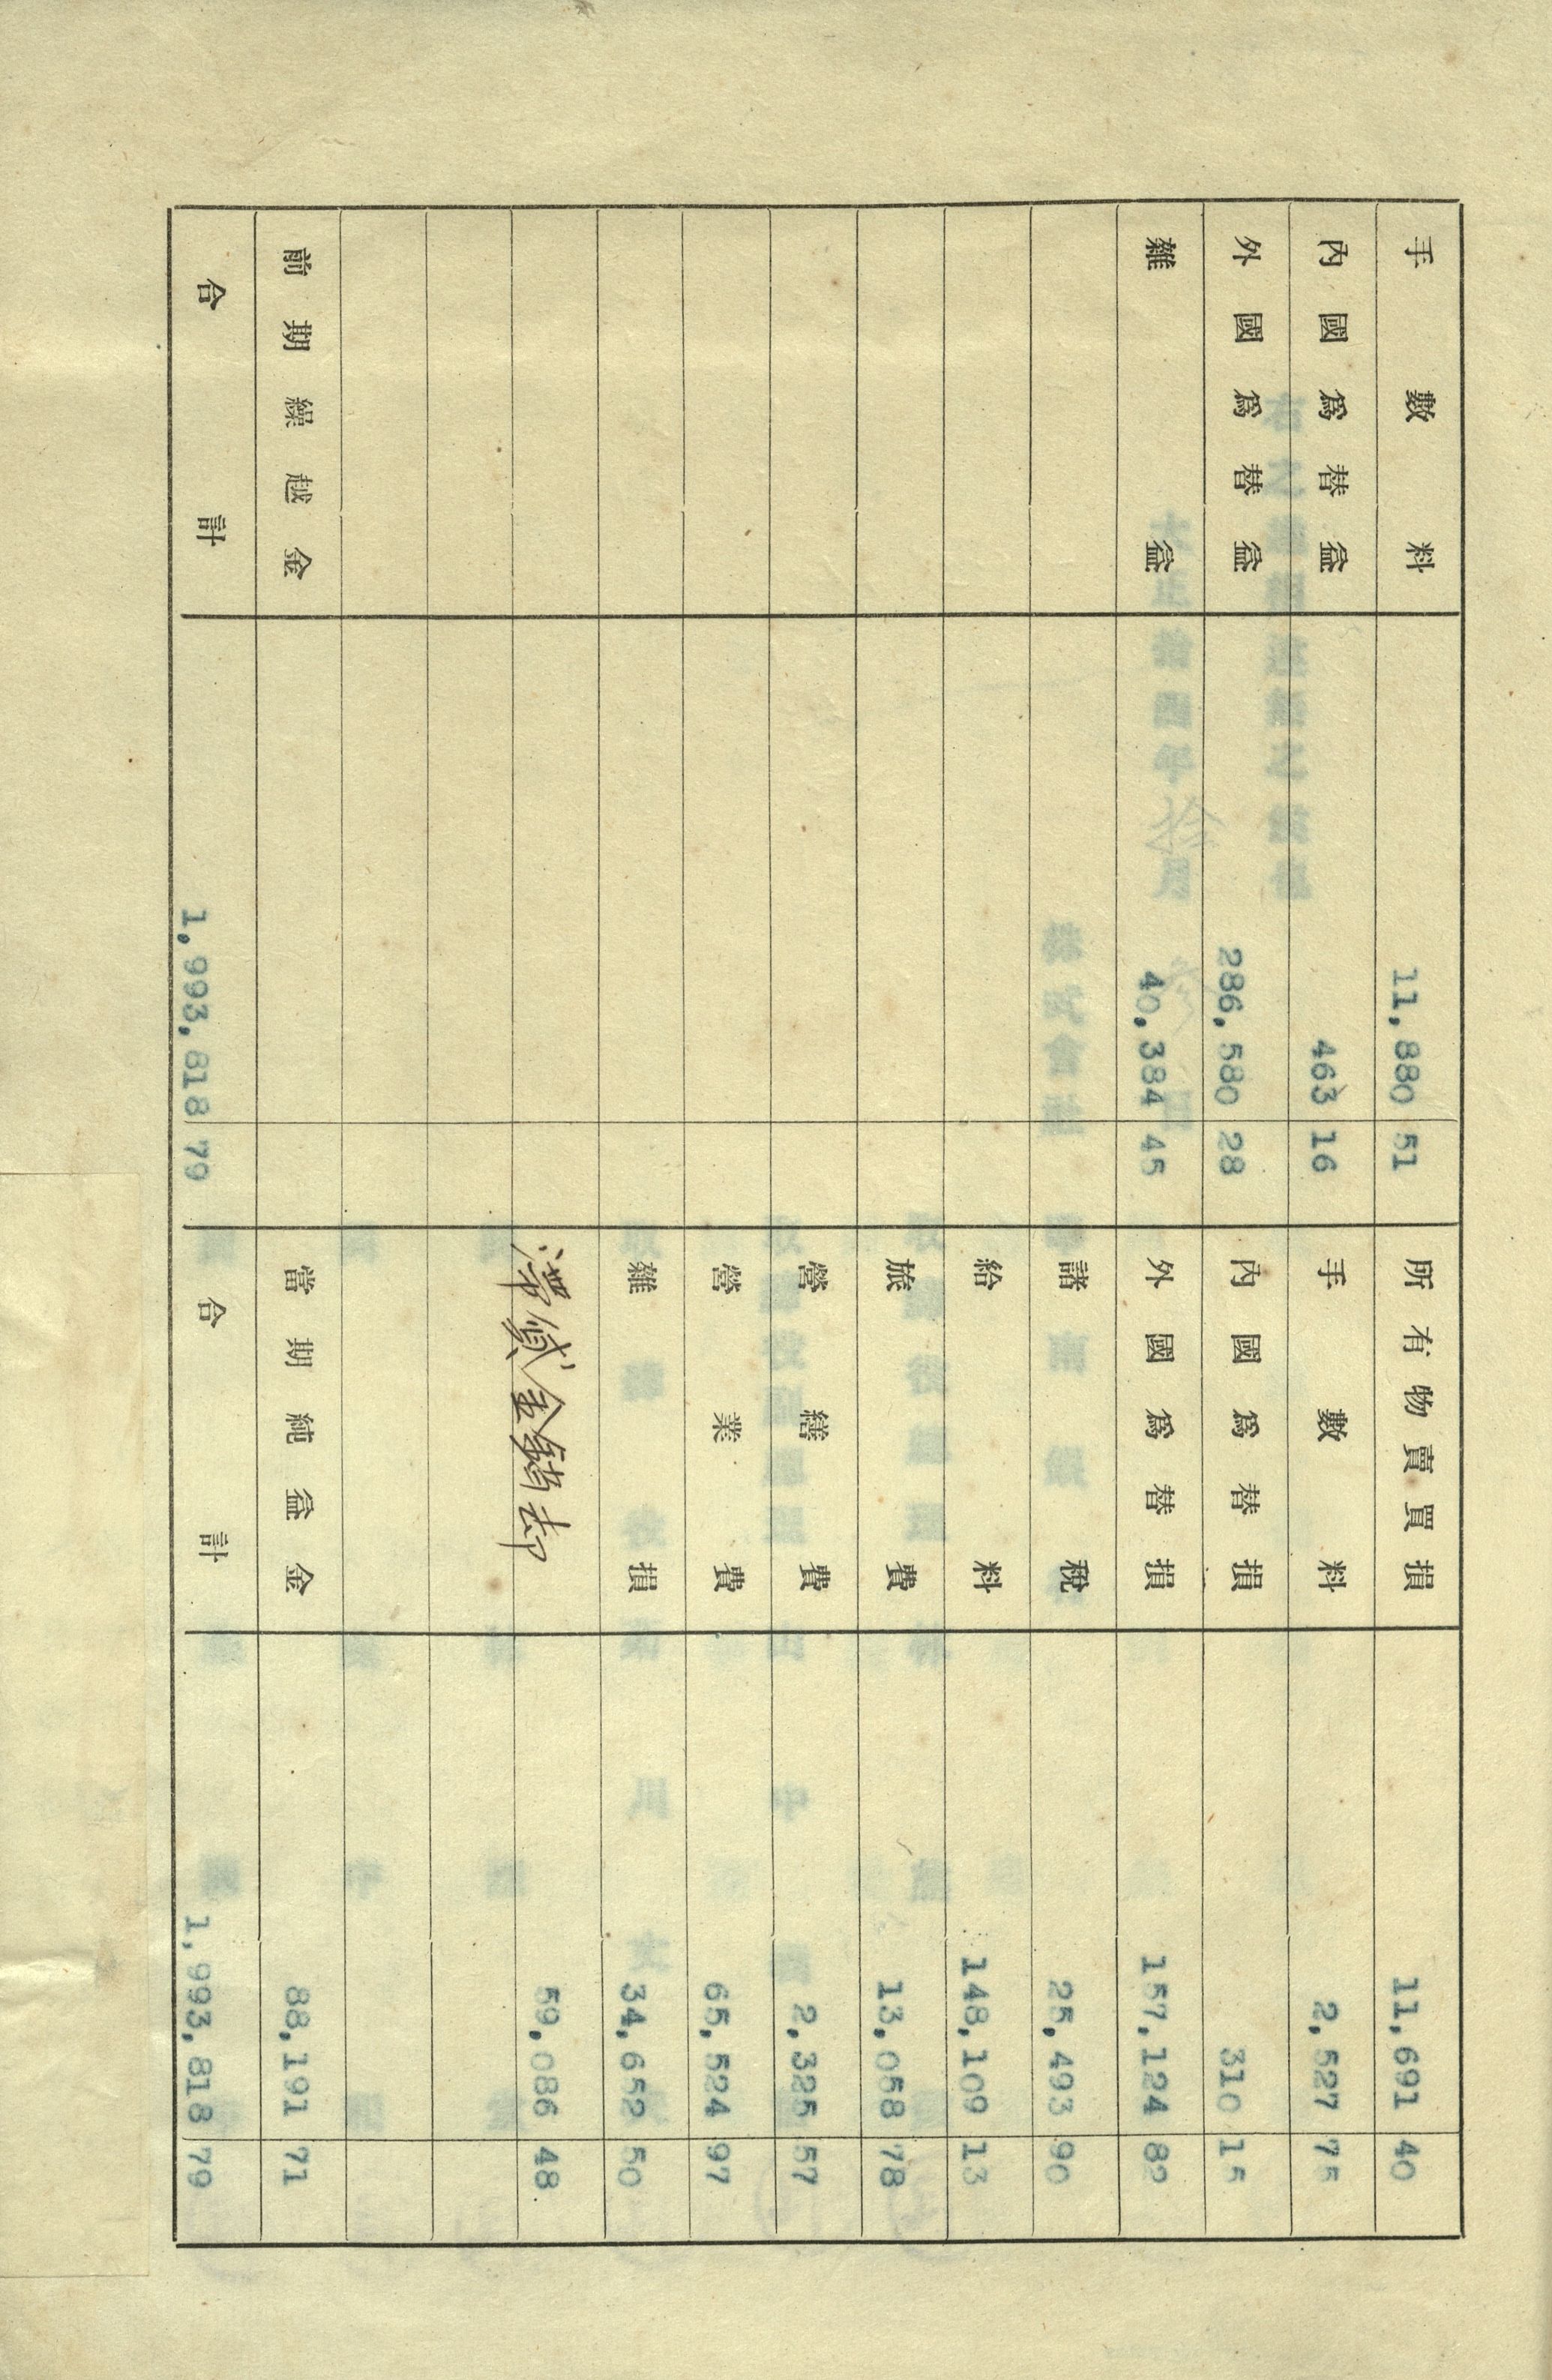 手數料 11,880 51 所有物賣買損 11,691 40
內國爲替益 463 16 手數料 2,527 75
外國爲替益 286,580 28 內國爲替損 310 15
雜益 40,384 45 外國爲替損 157,124 82
諸稅 25,493 90
給料 148,109 13
旅費 13,058 78
營繕費 2,325 57
營業費 65,524 97
雜損 34,652 50
滯貸金銷却 59,086 48
前期繰越金 當期純益金 88,191 71
合計 1,993,818 79 合計 1,993,818 79